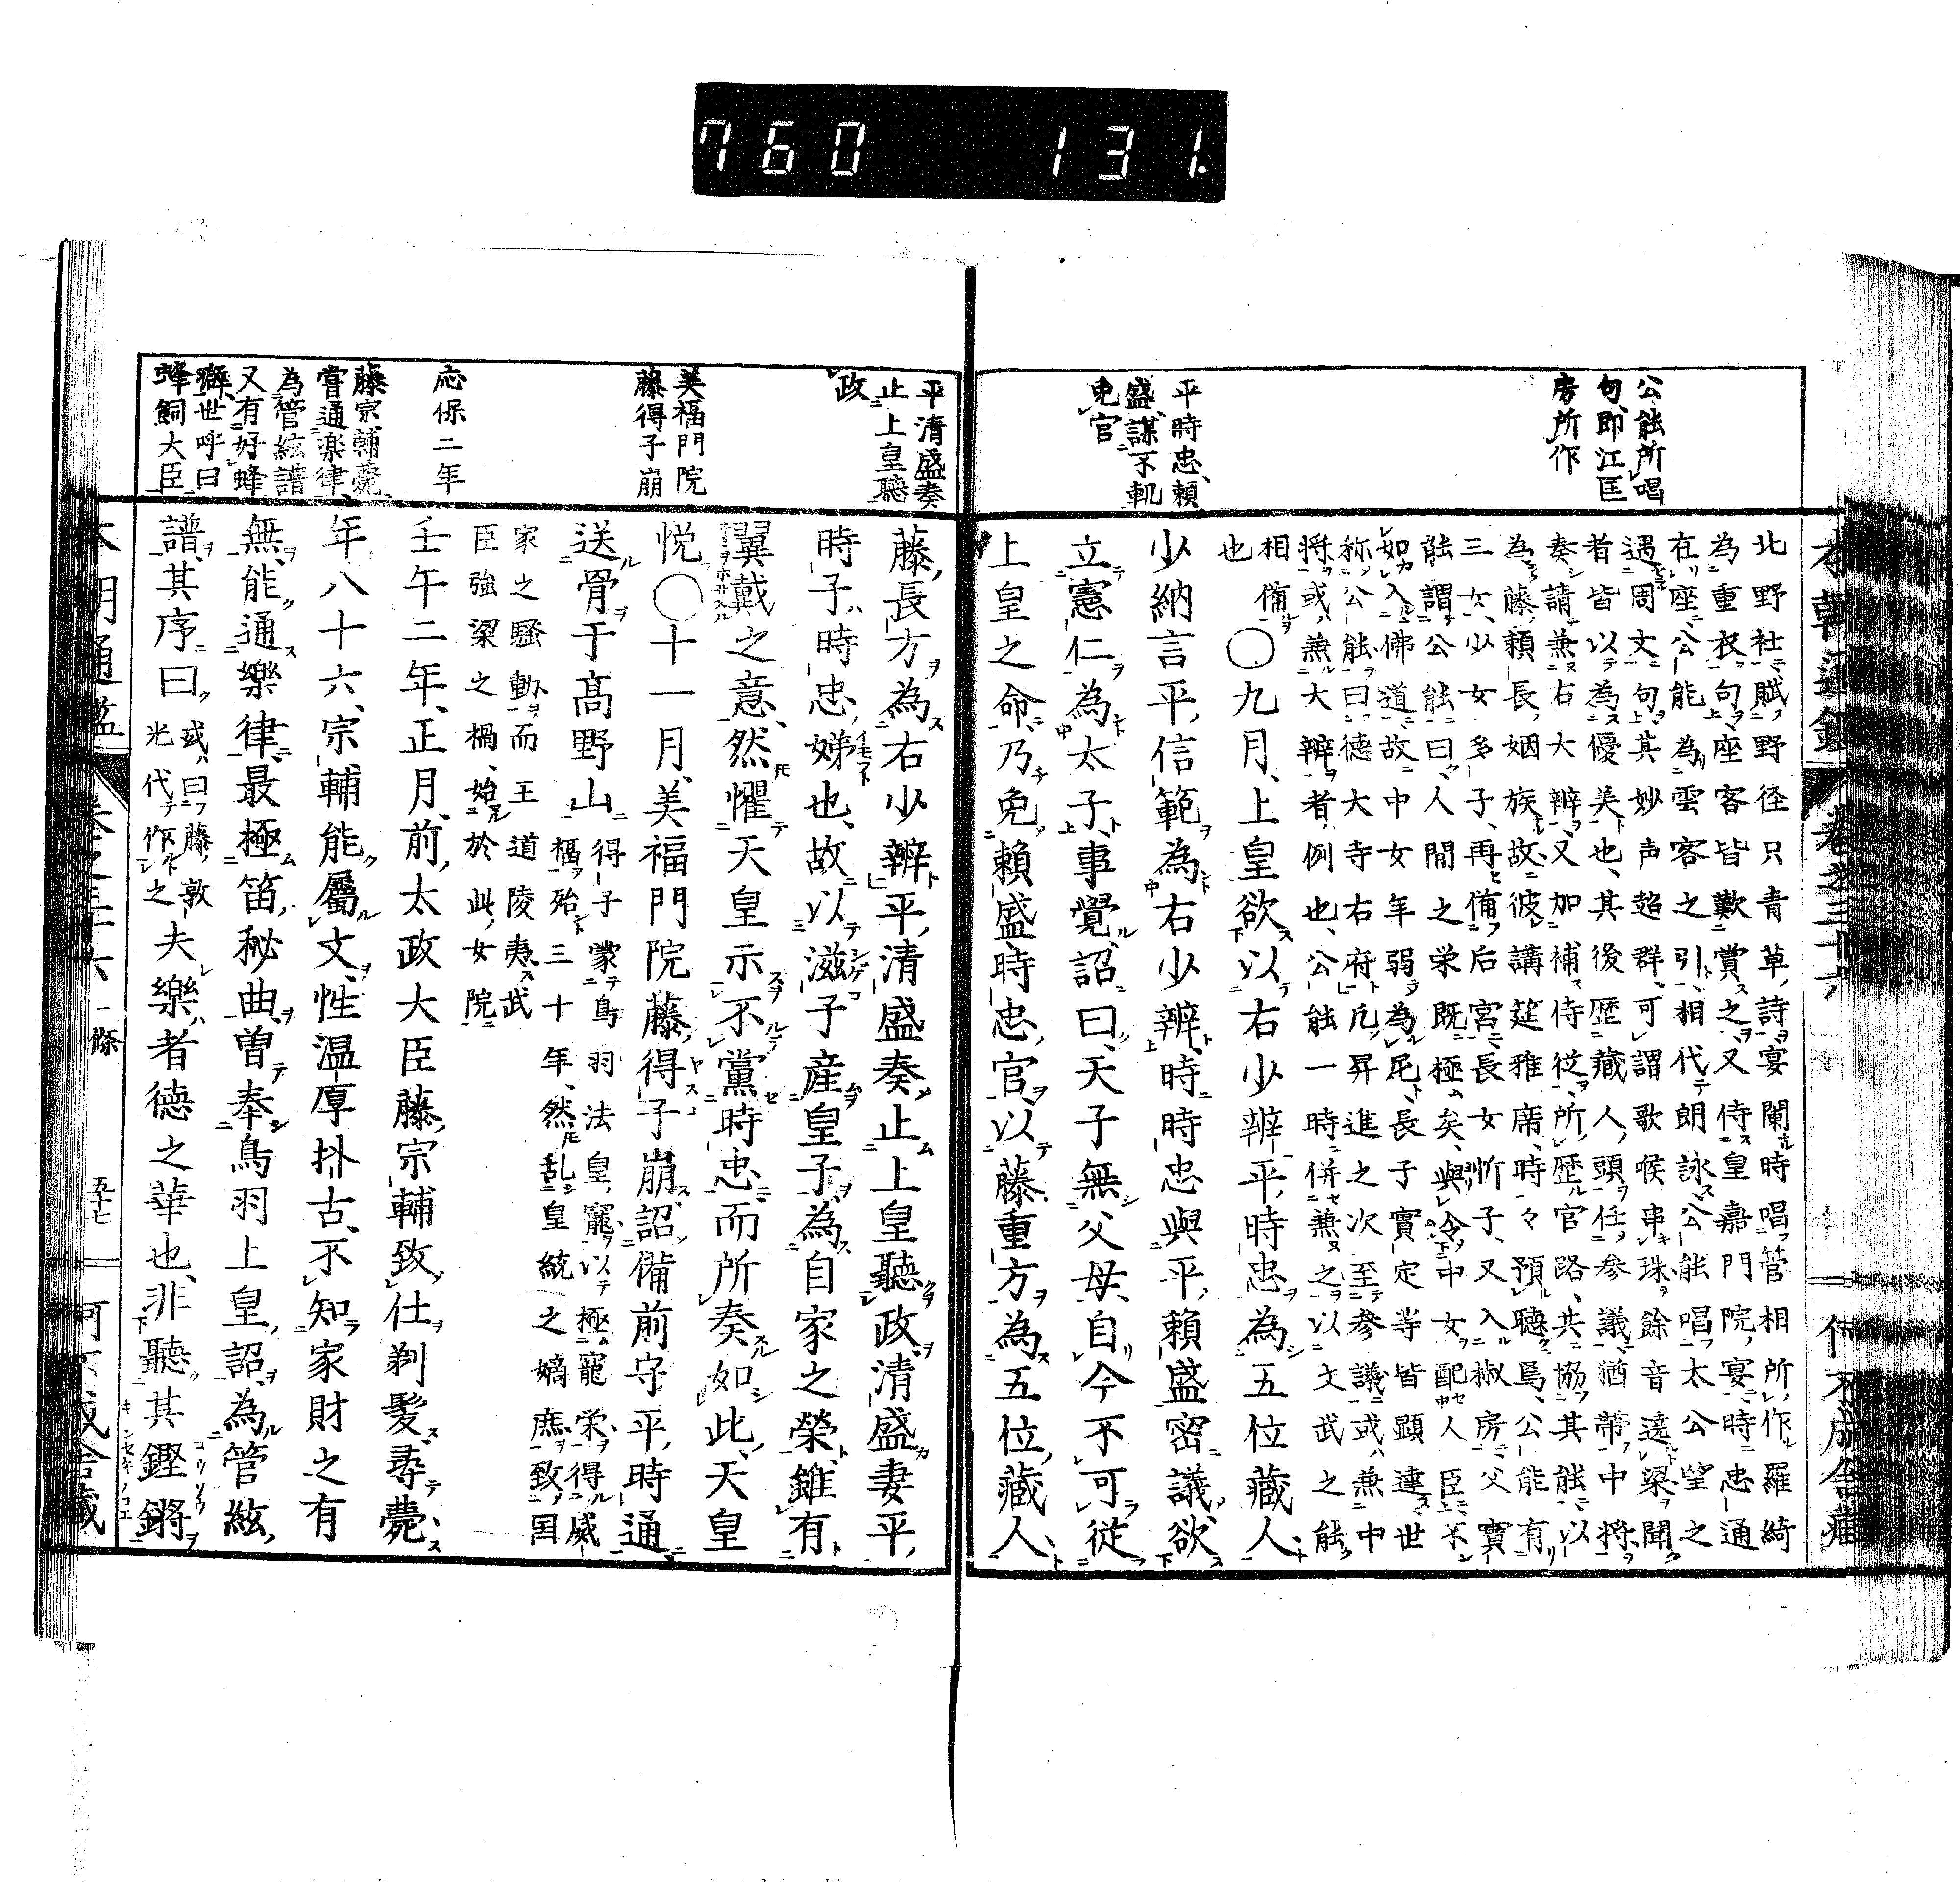 760 131.
公能所唱
句、即江匡
房所作
平時忠、頼
盛謀不軌
免官
北野社賦野径只青草詩宴闌時唱管相所作羅綺
為重衣句座客皆歎賞之又侍皇嘉門院宴時忠通
在座公能為雲客之引相代朗詠公能唱太公望之
遇周文句其妙声超群可謂歌喉串珠餘音遶梁聞
者皆以為優美也其後歴蔵人頭任参議猶帯中将
奏請兼右大辨又加補侍従所歴官路共協其能以
為藤頼長姻族故彼講筵雅席時々預聴焉公能有
三女少女多子再備后宮長女忻子又入椒房父實
能謂公能曰人間之栄既極矣與令中女配人臣不
如入佛道故中女年弱為尼長子實定等皆顕達世
称公能曰德大寺右府凡昇進之次至参議或兼中
将或兼大辨者例也公能一時併兼之以文武之能
相備〇九月上皇欲以右少辨平時忠為五位蔵人
也
少納言平信範為右少辨時時忠與平頼盛密議欲
立憲仁為太子事覺詔曰天子無父母自今不可従
上皇之命乃免頼盛時忠官以藤重方為五位藏人
平清盛奏
止上皇聴
政
美福門院
藤得子崩
応保二年
藤宗輔薨
嘗通楽律
為管絃譜
又有好蜂
癖世呼曰
蜂飼大臣
藤長方為右少辨平清盛奏止上皇聽政清盛妻平
時子時忠娣也故以滋子産皇子為自家之榮雖有
翼戴之意然懼天皇示不黨時忠而所奏如此天皇
悦〇十一月美福門院藤得子崩詔備前守平時通
送骨于高野山得子蒙鳥羽法皇寵以極寵栄得威
福殆三十年然乱皇統之嫡庶致国
家之騒動而王道陵夷武
臣強梁之禍始於此女院
壬午二年正月前太政大臣藤宗輔致仕剃髪尋薨
年八十六宗輔能屬文性温厚朴古不知家財之有
無能通樂律最極笛秘曲曽奉鳥羽上皇詔為管絃
譜其序曰或曰藤敦
光代作之夫樂者德之華也非聽其鏗鏘
本朝通鑑 卷之三十六 二條 五十七